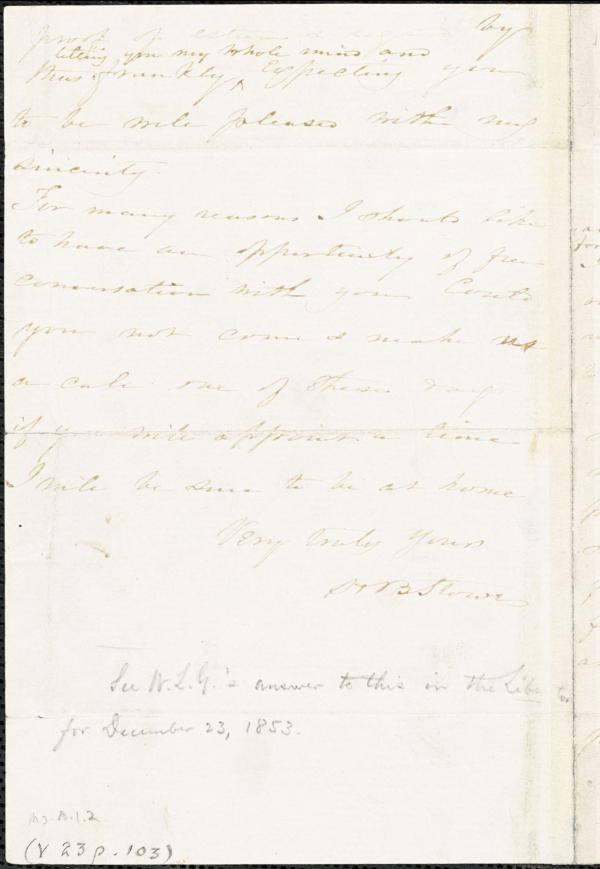 proof of esteem & regard by
telling you my whole mind and
thus frankly ^ Expecting you
to be well pleased with my
sincerity.
For many reasons I should like
to have an opportunity of free
conversation with you Could
you not come & make us
a call one of these days
if you will appoint a time
I will be sure to be at home
Very truly yours
H B Stowe
See W. L. G.'s answer to this in the Liberator
for December 23, 1853.
Ms. A. 1. 2
(V 23 p. 103)